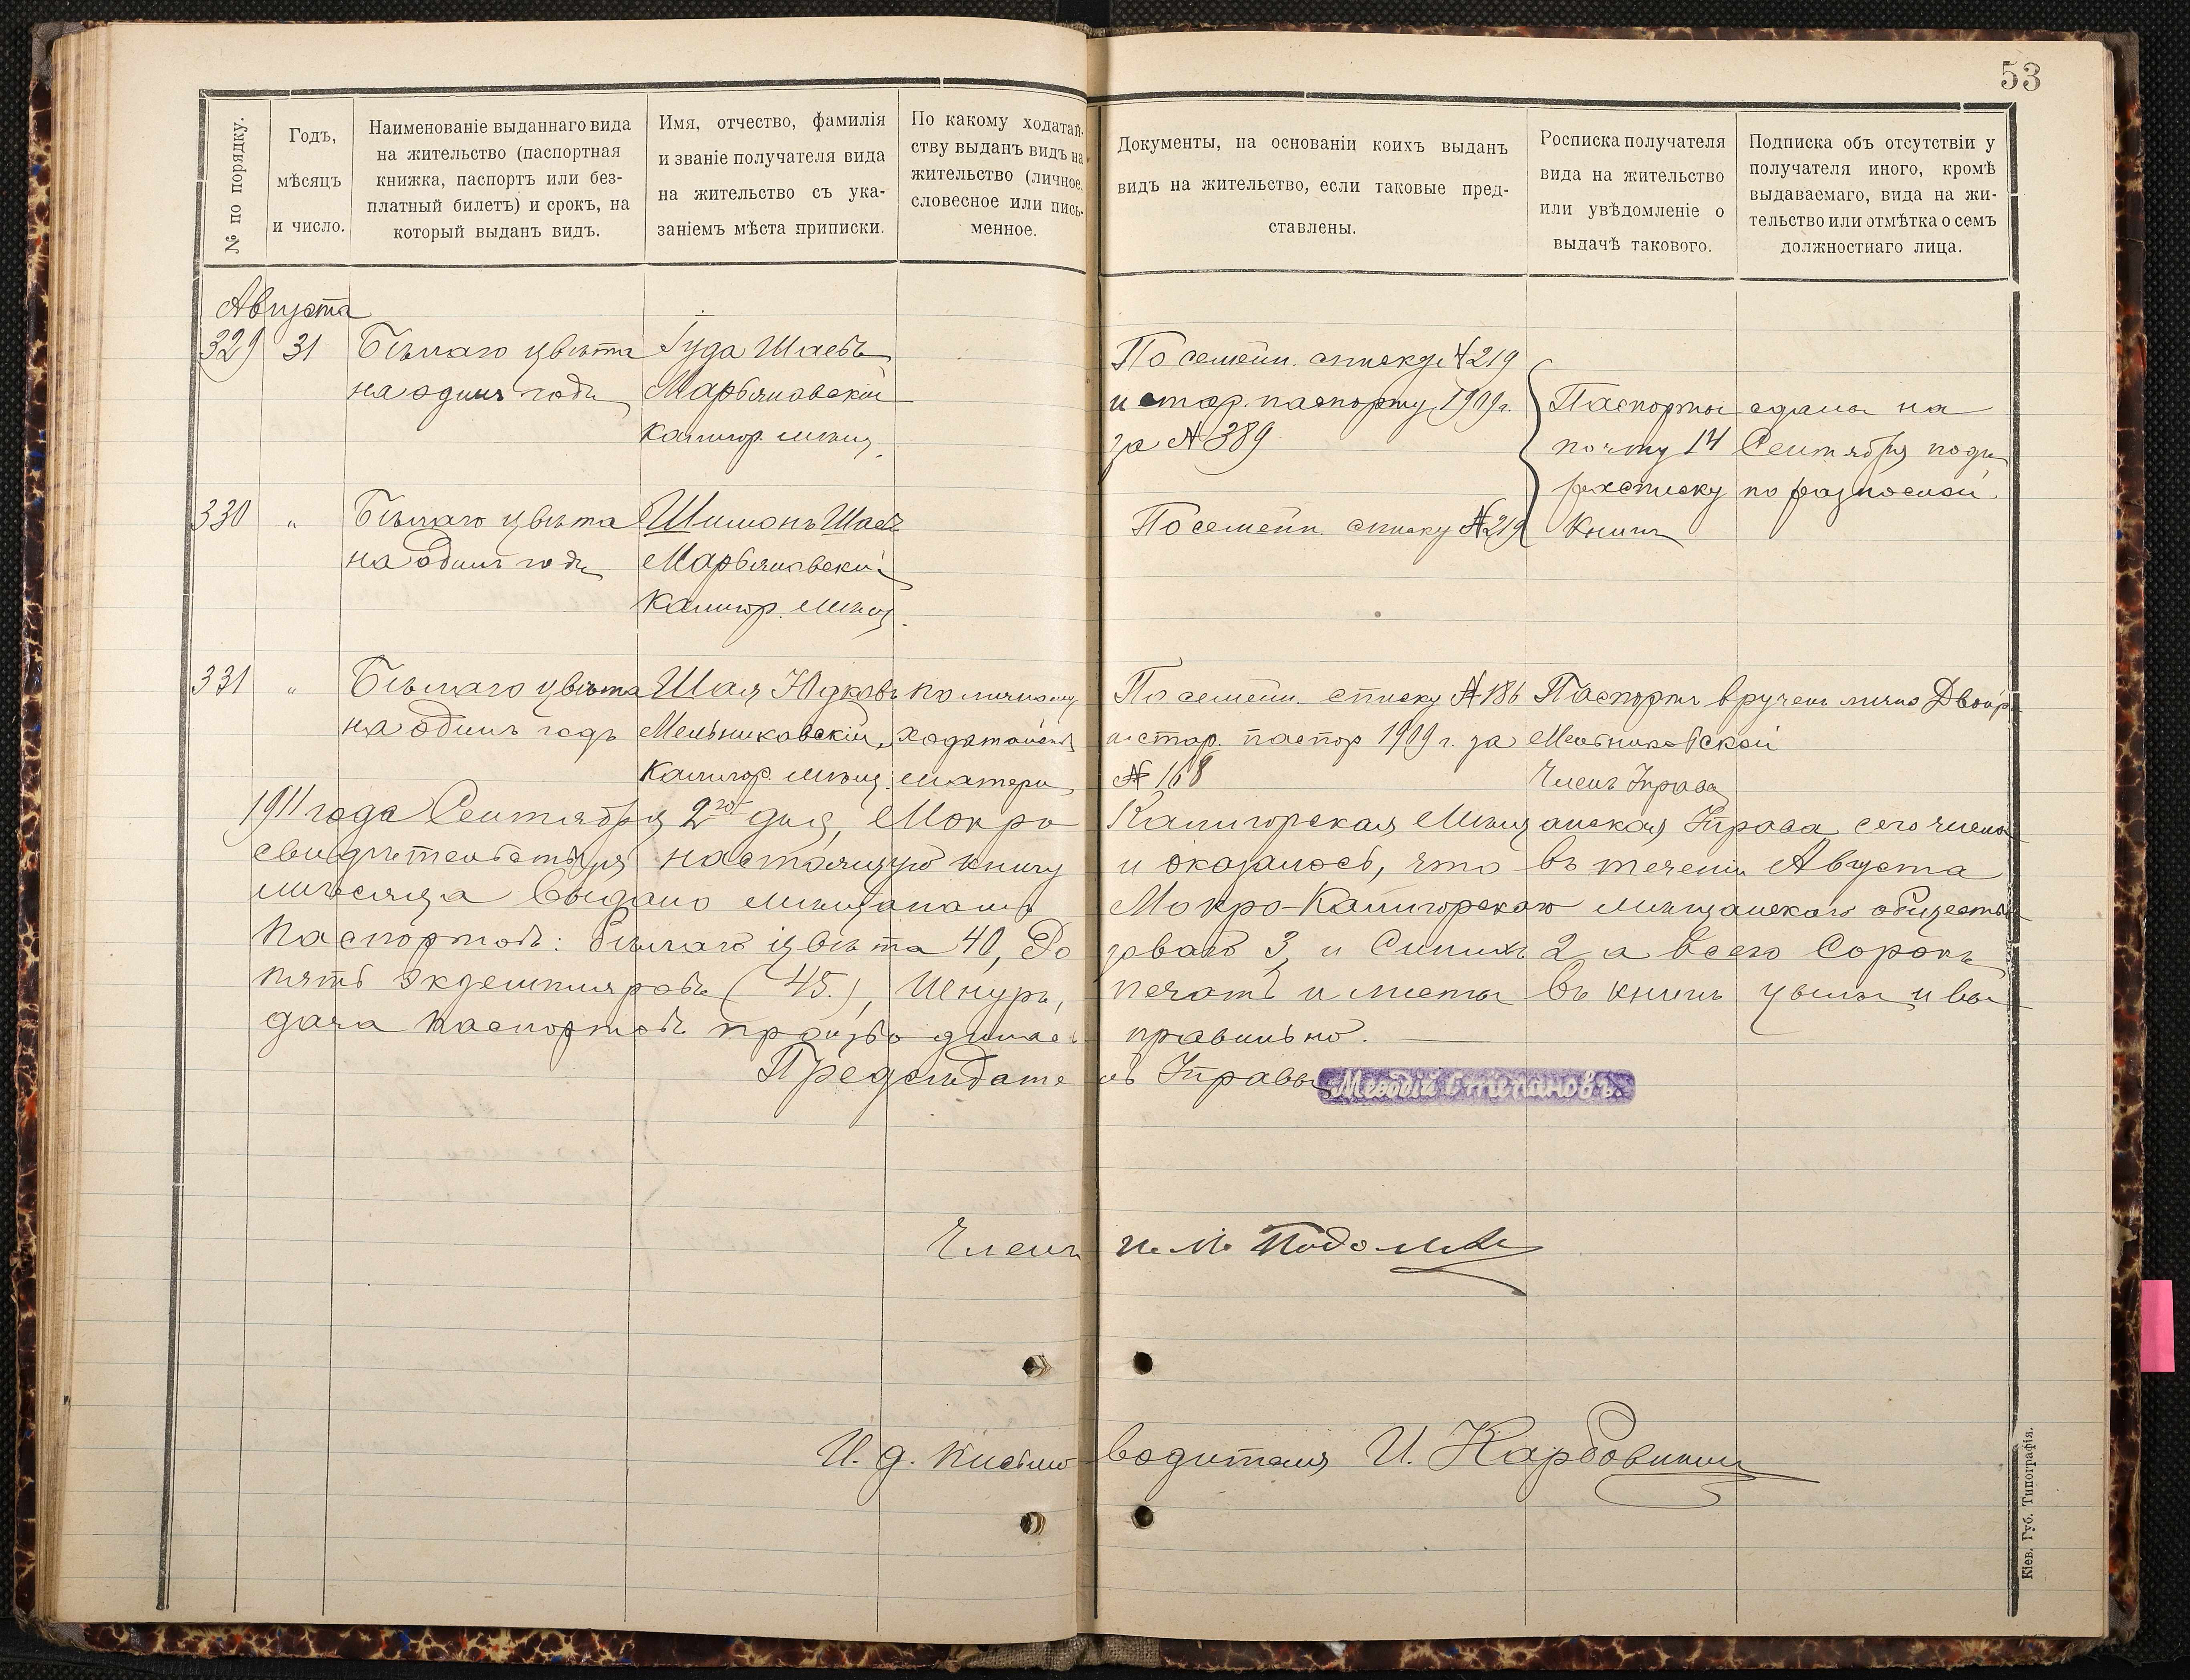 53
№ по порядку.
Годъ,
мѣсяцъ
и число.
Наименованіе выданнаго вида
на жительство (паспортная
книжка, паспортъ или без-
платный билетъ) и срокъ, на
который выданъ видъ.
Имя, отчество, фамилія
и званіе получателя вида
на жительство съ ука-
заніемъ мѣста приписки.
По какому ходатай-
ству выданъ видъ на
жительство (личное,
словесное или пись-
менное.
Документы, на основаніи коихъ выданъ
видъ на жительство, если таковые пред-
ставлены.
Росписка получателя
вида на жительство
или увѣдомленіе о
выдачѣ такового.
Подписка объ отсутствіи у
получателя иного, кромѣ
выдаваемаго, вида на жи-
тельство или отмѣтка о семъ
должностнаго лица.
Августа
329 31 Бѣлаго цвѣта Іуда Шаевъ По семейн. списку № 219
на одинъ годъ Марьяновскій и стар. паспорту 1909 г. Паспорты сданы на
Калигор. мѣщ. за № 389 почту 14 Сентября подъ
росписку по разносной
330 " Бѣлаго цвѣта Шимонъ Шаевъ По семейн. списку № 219 книгѣ
на одинъ годъ Марьяновскій
Калигор. мѣщ.
331 " Бѣлаго цвѣта Шая Юдковъ по личному По семейн. списку № 186 Паспортъ врученъ лично Двойрѣ
на одинъ годъ Мельниковскій, ходатайств и стар. паспор 1909 г. за Мельниковской
Калигор. мѣщ. матери № 168 Членъ Управы
1911 года Сентября 2го дня, Мокро Калигорская Мѣщанская Управа сего числа
свидѣтельствуя настоящую книгу и оказалось, что въ теченіи Августа
мѣсяца выдано мѣщанамъ Мокро-Калигорскаго мѣщанскаго общества
паспортовъ: бѣлаго цвѣта 40, Ро зовыхъ 3, и Синихъ 2 а всего Сорокъ
пять экземпляровъ (45.), Шнуръ, печать и листы въ книгѣ цѣлы и вы
дача паспортовъ производилась правильно.
Предсѣдате ль Управы Меѳодій Степановъ.
Членъ
И. д. письмо водителя И. Карбовничій
Кіев. Губ. Типографія.